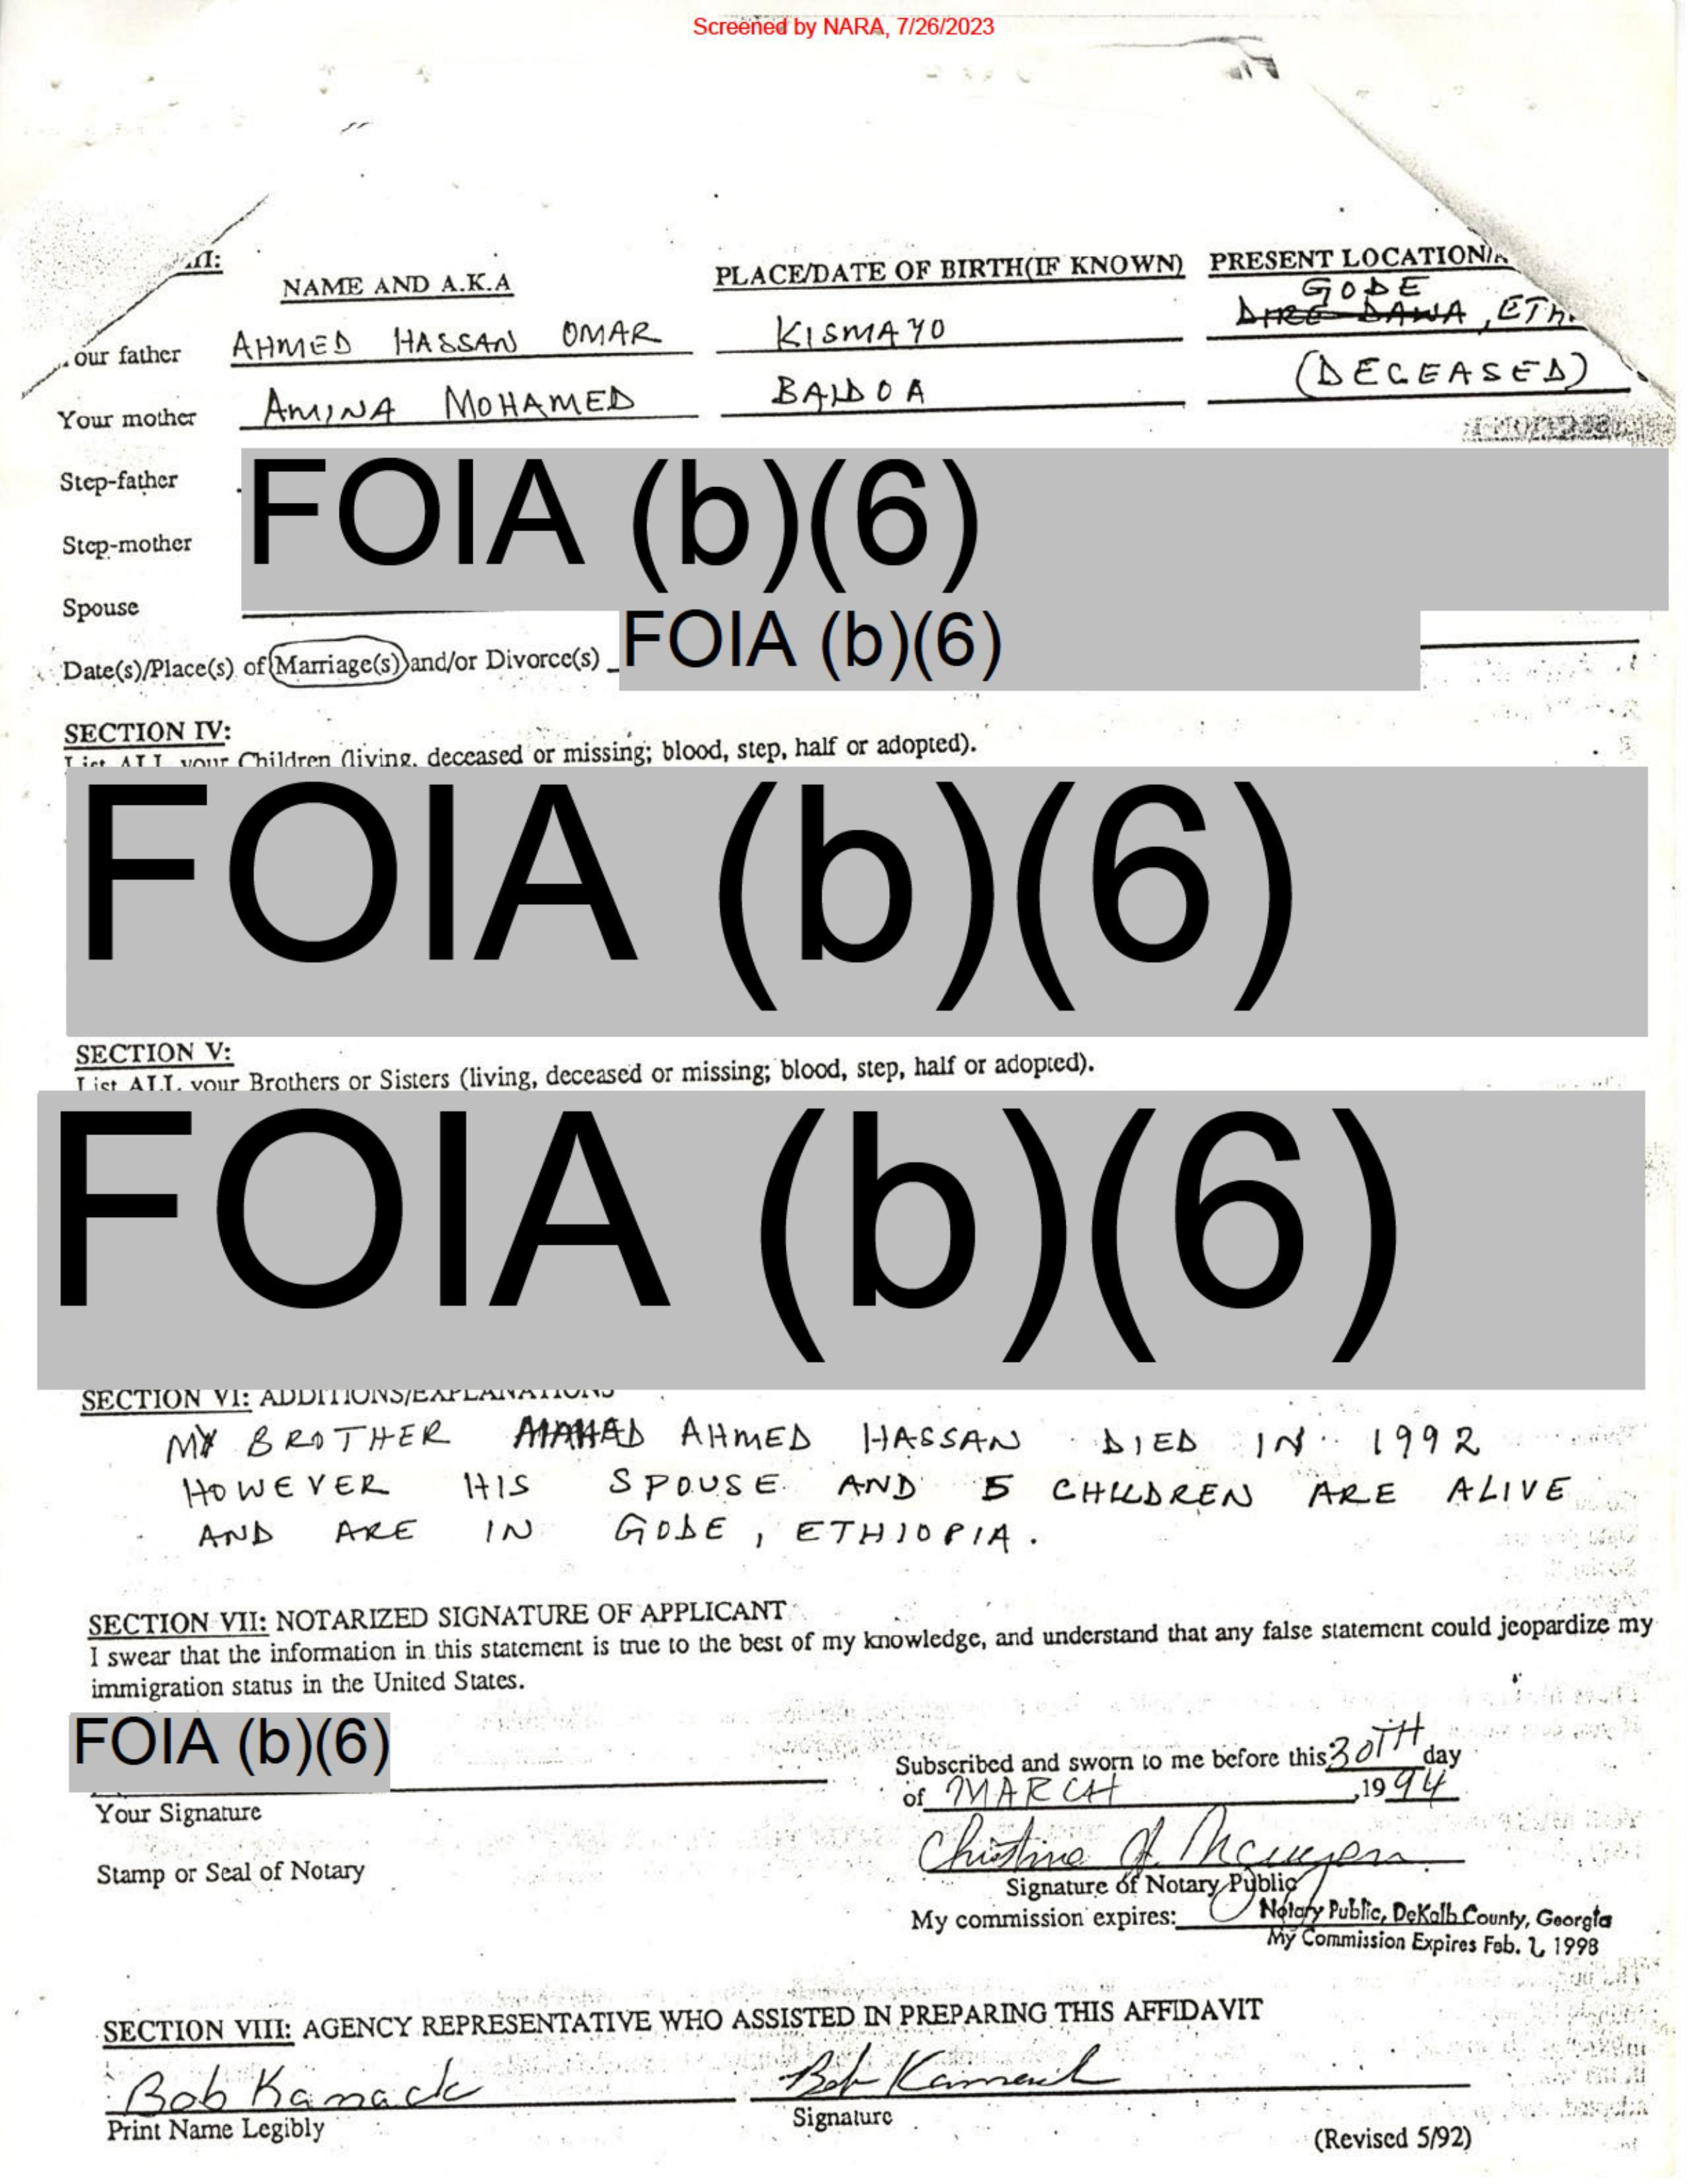 Screened by NARA, 7/26/2023
NAME AND A.K.A PLACE/DATE OF BIRTH(IF KNOWN) PRESENT LOCATION/
GODE
our father AHMED HASSAN OMAR KISMAYO DIRE DAWA, ETH
Your mother AMINA MOHAMED BAIDOA (DECEASED)
Step-father FOIA (b)(6)
Step-mother
Spouse
Date(s)/Place(s) of Marriage(s) and/or Divorce(s) FOIA (b)(6)
SECTION IV:
List ALL your Children (living, deceased or missing; blood, step, half or adopted).
FOIA (b)(6)
SECTION V:
List ALL your Brothers or Sisters (living, deceased or missing; blood, step, half or adopted).
FOIA (b)(6)
SECTION VI: ADDITIONS/EXPLANATIONS
MY BROTHER AHMED HASSAN DIED IN 1992
HOWEVER HIS SPOUSE AND 5 CHILDREN ARE ALIVE
AND ARE IN GODE, ETHIOPIA.
SECTION VII: NOTARIZED SIGNATURE OF APPLICANT
I swear that the information in this statement is true to the best of my knowledge, and understand that any false statement could jeopardize my
immigration status in the United States.
FOIA (b)(6)
Your Signature
Stamp or Seal of Notary
Subscribed and sworn to me before this 30TH day
of MARCH ,19 94
Christine
Signature of Notary Public
My commission expires: Notary Public, DeKalb County, Georgia
My Commission Expires Feb. 1, 1998
SECTION VIII: AGENCY REPRESENTATIVE WHO ASSISTED IN PREPARING THIS AFFIDAVIT
Bob Kamack Bob Kamack
Print Name Legibly Signature
(Revised 5/92)